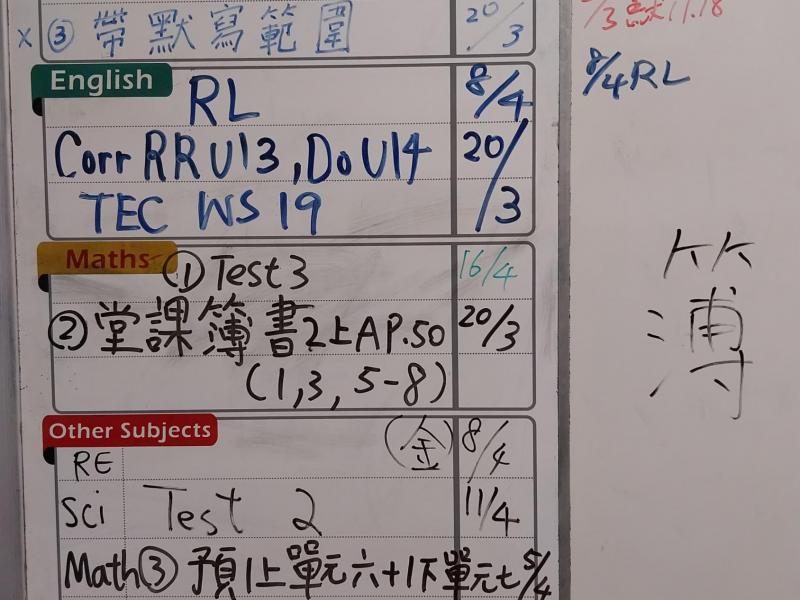 x ③ 帶默寫範圍 20/3
/3 默11.18
English
RL 8/4
8/4 RL
Corr RR U13, Do U14 20/3
TEC WS 19
Maths
① Test 3 16/4
② 堂課簿書2上A P.50 20/3
(1,3, 5-8)
簿
Other Subjects
RE (金) 8/4
Sci Test 2 11/4
Math③ 預1上單元六+1下單元七 5/4